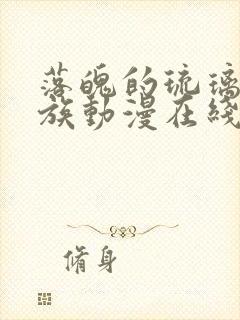 落魄的琉璃
族動漫在綫
脩身